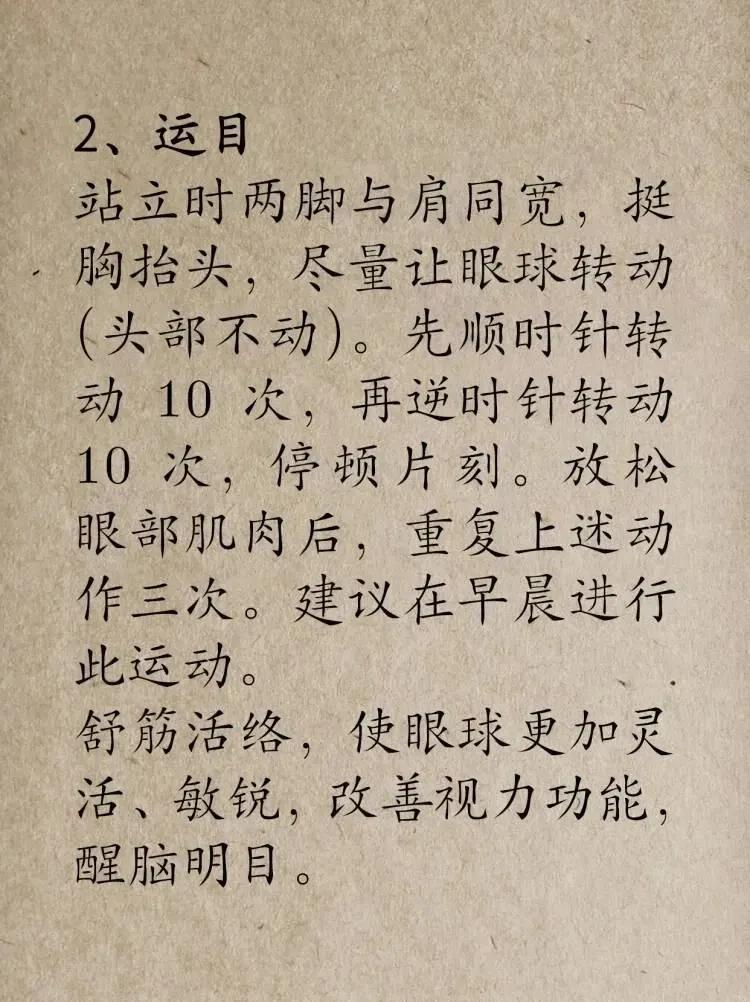 2、运目
站立时两脚与肩同宽，挺
胸抬头，尽量让眼球转动
(头部不动)。先顺时针转
动 10 次，再逆时针转动
10 次，停顿片刻。放松
眼部肌肉后，重复上迷动
作三次。建议在早晨进行
此运动。
舒筋活络，使眼球更加灵
活、敏锐，改善视力功能，
醒脑明目。